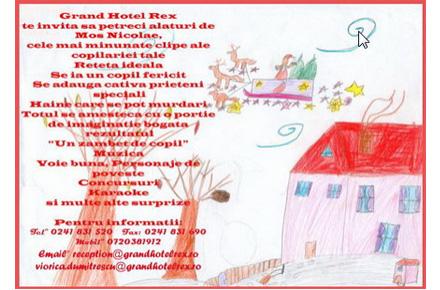 Grand Hotel Rex
te invita sa petreci alaturi de
Mos Nicolae,
cele mai minunate clipe ale
copilariei tale
Reteta ideala
Se ia un copil fericit
Se adauga cativa prieteni
speciali
Haine care se pot murdari
Totul se amesteca cu o portie
de imaginatie bogata
rezultatul
"Un zambet de copil"
Muzica
Voie buna, Personaje de
poveste
Concursuri,
Karaoke
si multe alte surprize
Pentru informatii:
Tel* 0241 831 520 Fax: 0241 831 690
Mobil* 0720381912
Email* reception@grandhotelrex.ro
viorica.dumitrescu@grandhotelrex.ro